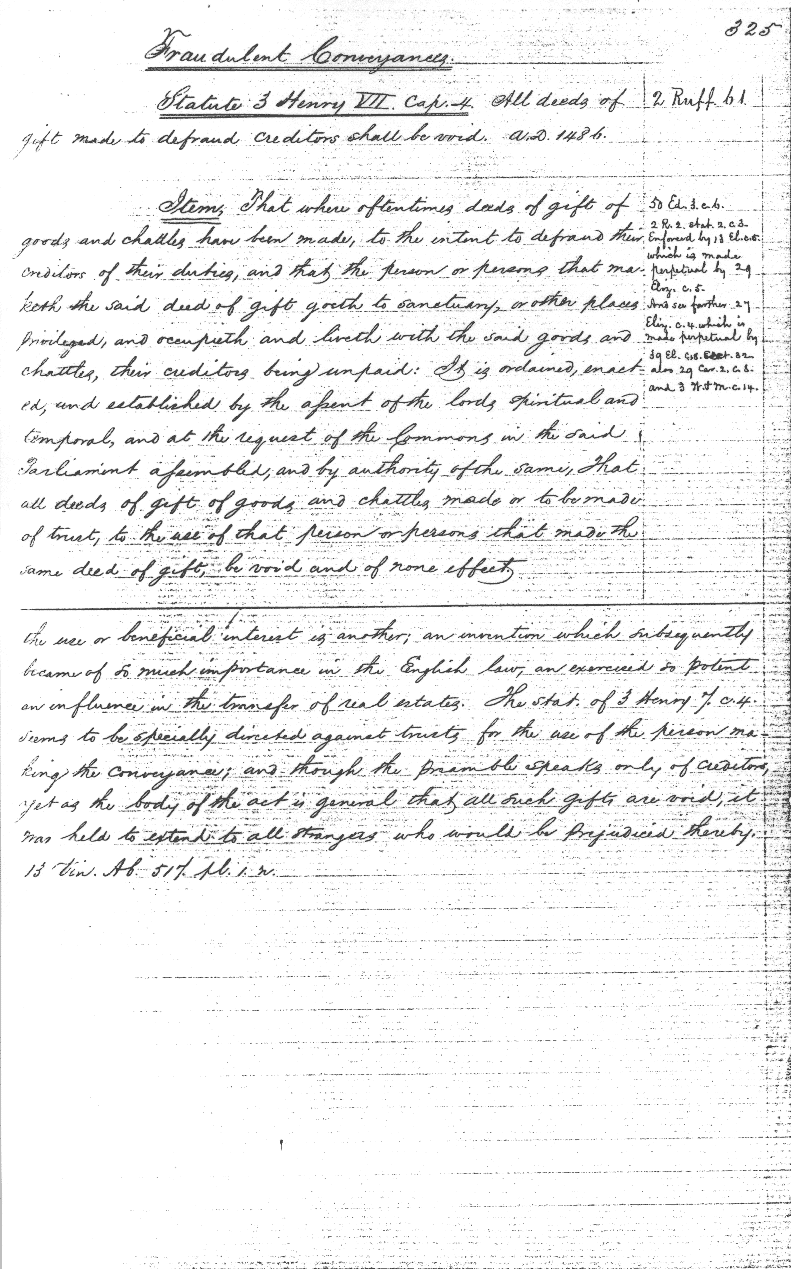 325
Fraudulent Conveyances.
Statute 3 Henry VII. Cap. 4. All deeds of
gift made to defraud creditors shall be void. A.D. 1486.
2 Ruff. 61.
Item, That where oftentimes deeds of gift of
goods and chattles have been made, to the intent to defraud their
creditors of their duties, and that the person or persons that ma-
keth the said deed of gift goeth to sanctuary, or other places
privileged, and occupieth and liveth with the said goods and
chattles, their creditors being unpaid: It is ordained, enact-
ed, and established by the assent of the lords spiritual and
temporal, and at the request of the Commons in the said
Parliament assembled, and by authority of the same, That
all deeds of gift of goods and chattles made or to be made
of trust, to the use of that person or persons that made the
same deed of gift, be void and of none effect.
50 Ed. 3. c. 6.
2 R. 2. stat. 2. c. 3.
Enforced by 13 El. c. 5.
which is made
perpetual by 29
Eliz. c. 5.
And see further 27
Eliz. c. 4. which is
made perpetual by
39 El. c. 18. Sect. 32
also 29 Car. 2. c. 3.
and 3 W. & M. c. 14.
the use or beneficial interest is another; an invention which subsequently
became of so much importance in the English law, an exercised so potent
an influence in the transfer of real estates. The stat. of 3 Henry 7. c. 4.
seems to be specially directed against trusts for the use of the person ma-
king the conveyance; and though the preamble speaks only of creditors,
yet as the body of the act is general that all such gifts are void, it
was held to extend to all strangers who would be prejudiced thereby.
13 Vin. Ab. 517. pl. 1. n.